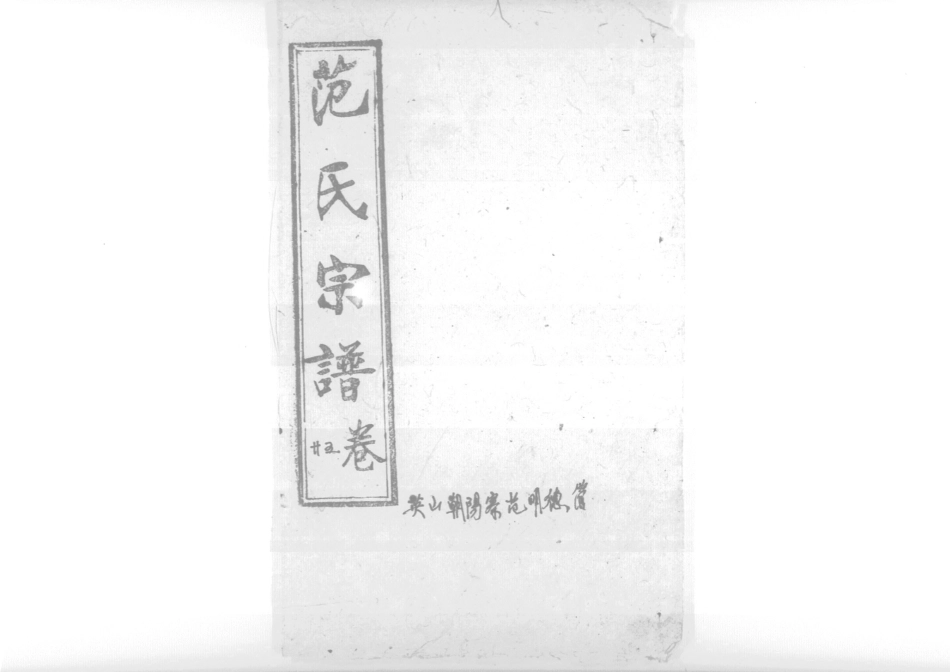 范氏宗譜
卷廿五
英山朝陽寨范明德